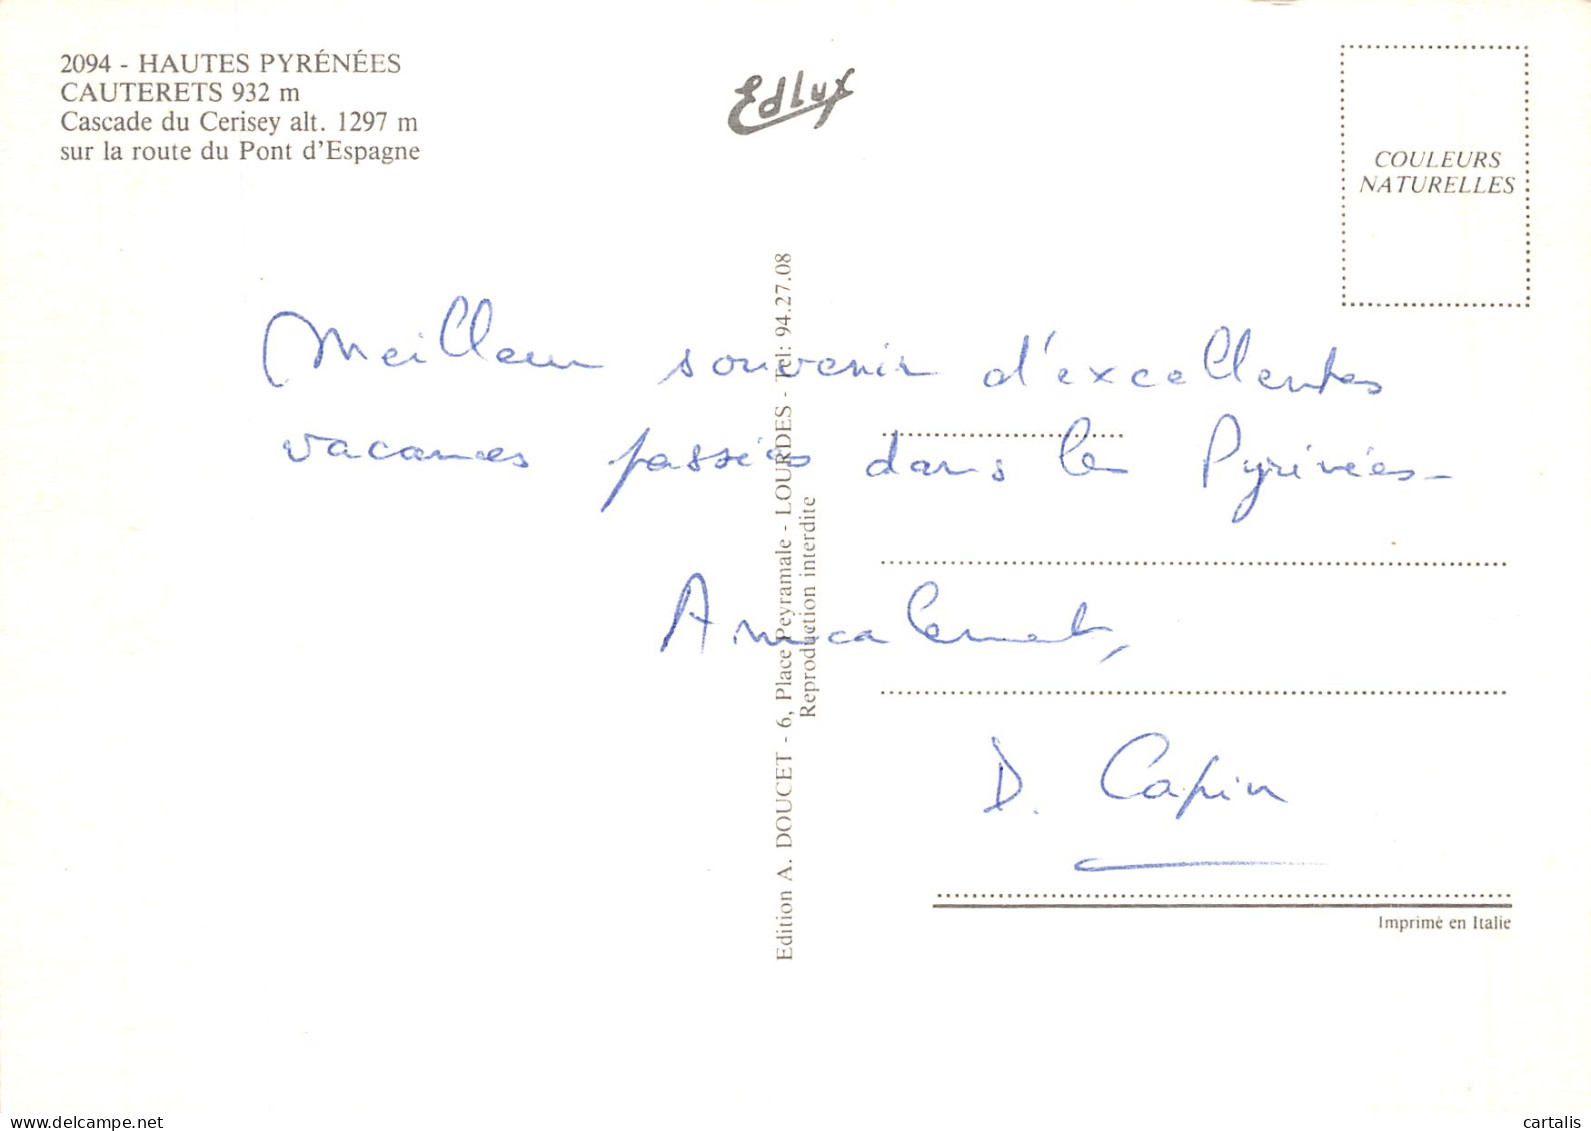 2094 - HAUTES PYRÉNÉES
CAUTERETS 932 m
Cascade du Cerisey alt. 1297 m
sur la route du Pont d'Espagne
Edlux
COULEURS
NATURELLES
Meilleur souvenir d'excellentes
vacances passées dans les Pyrénées -
Amicalement,
D. Capin
Edition A. DOUCET - 6, Place Peyramale - LOURDES - Tel: 94.27.08
Reproduction interdite
Imprimé en Italie
delcampe.net
cartalis